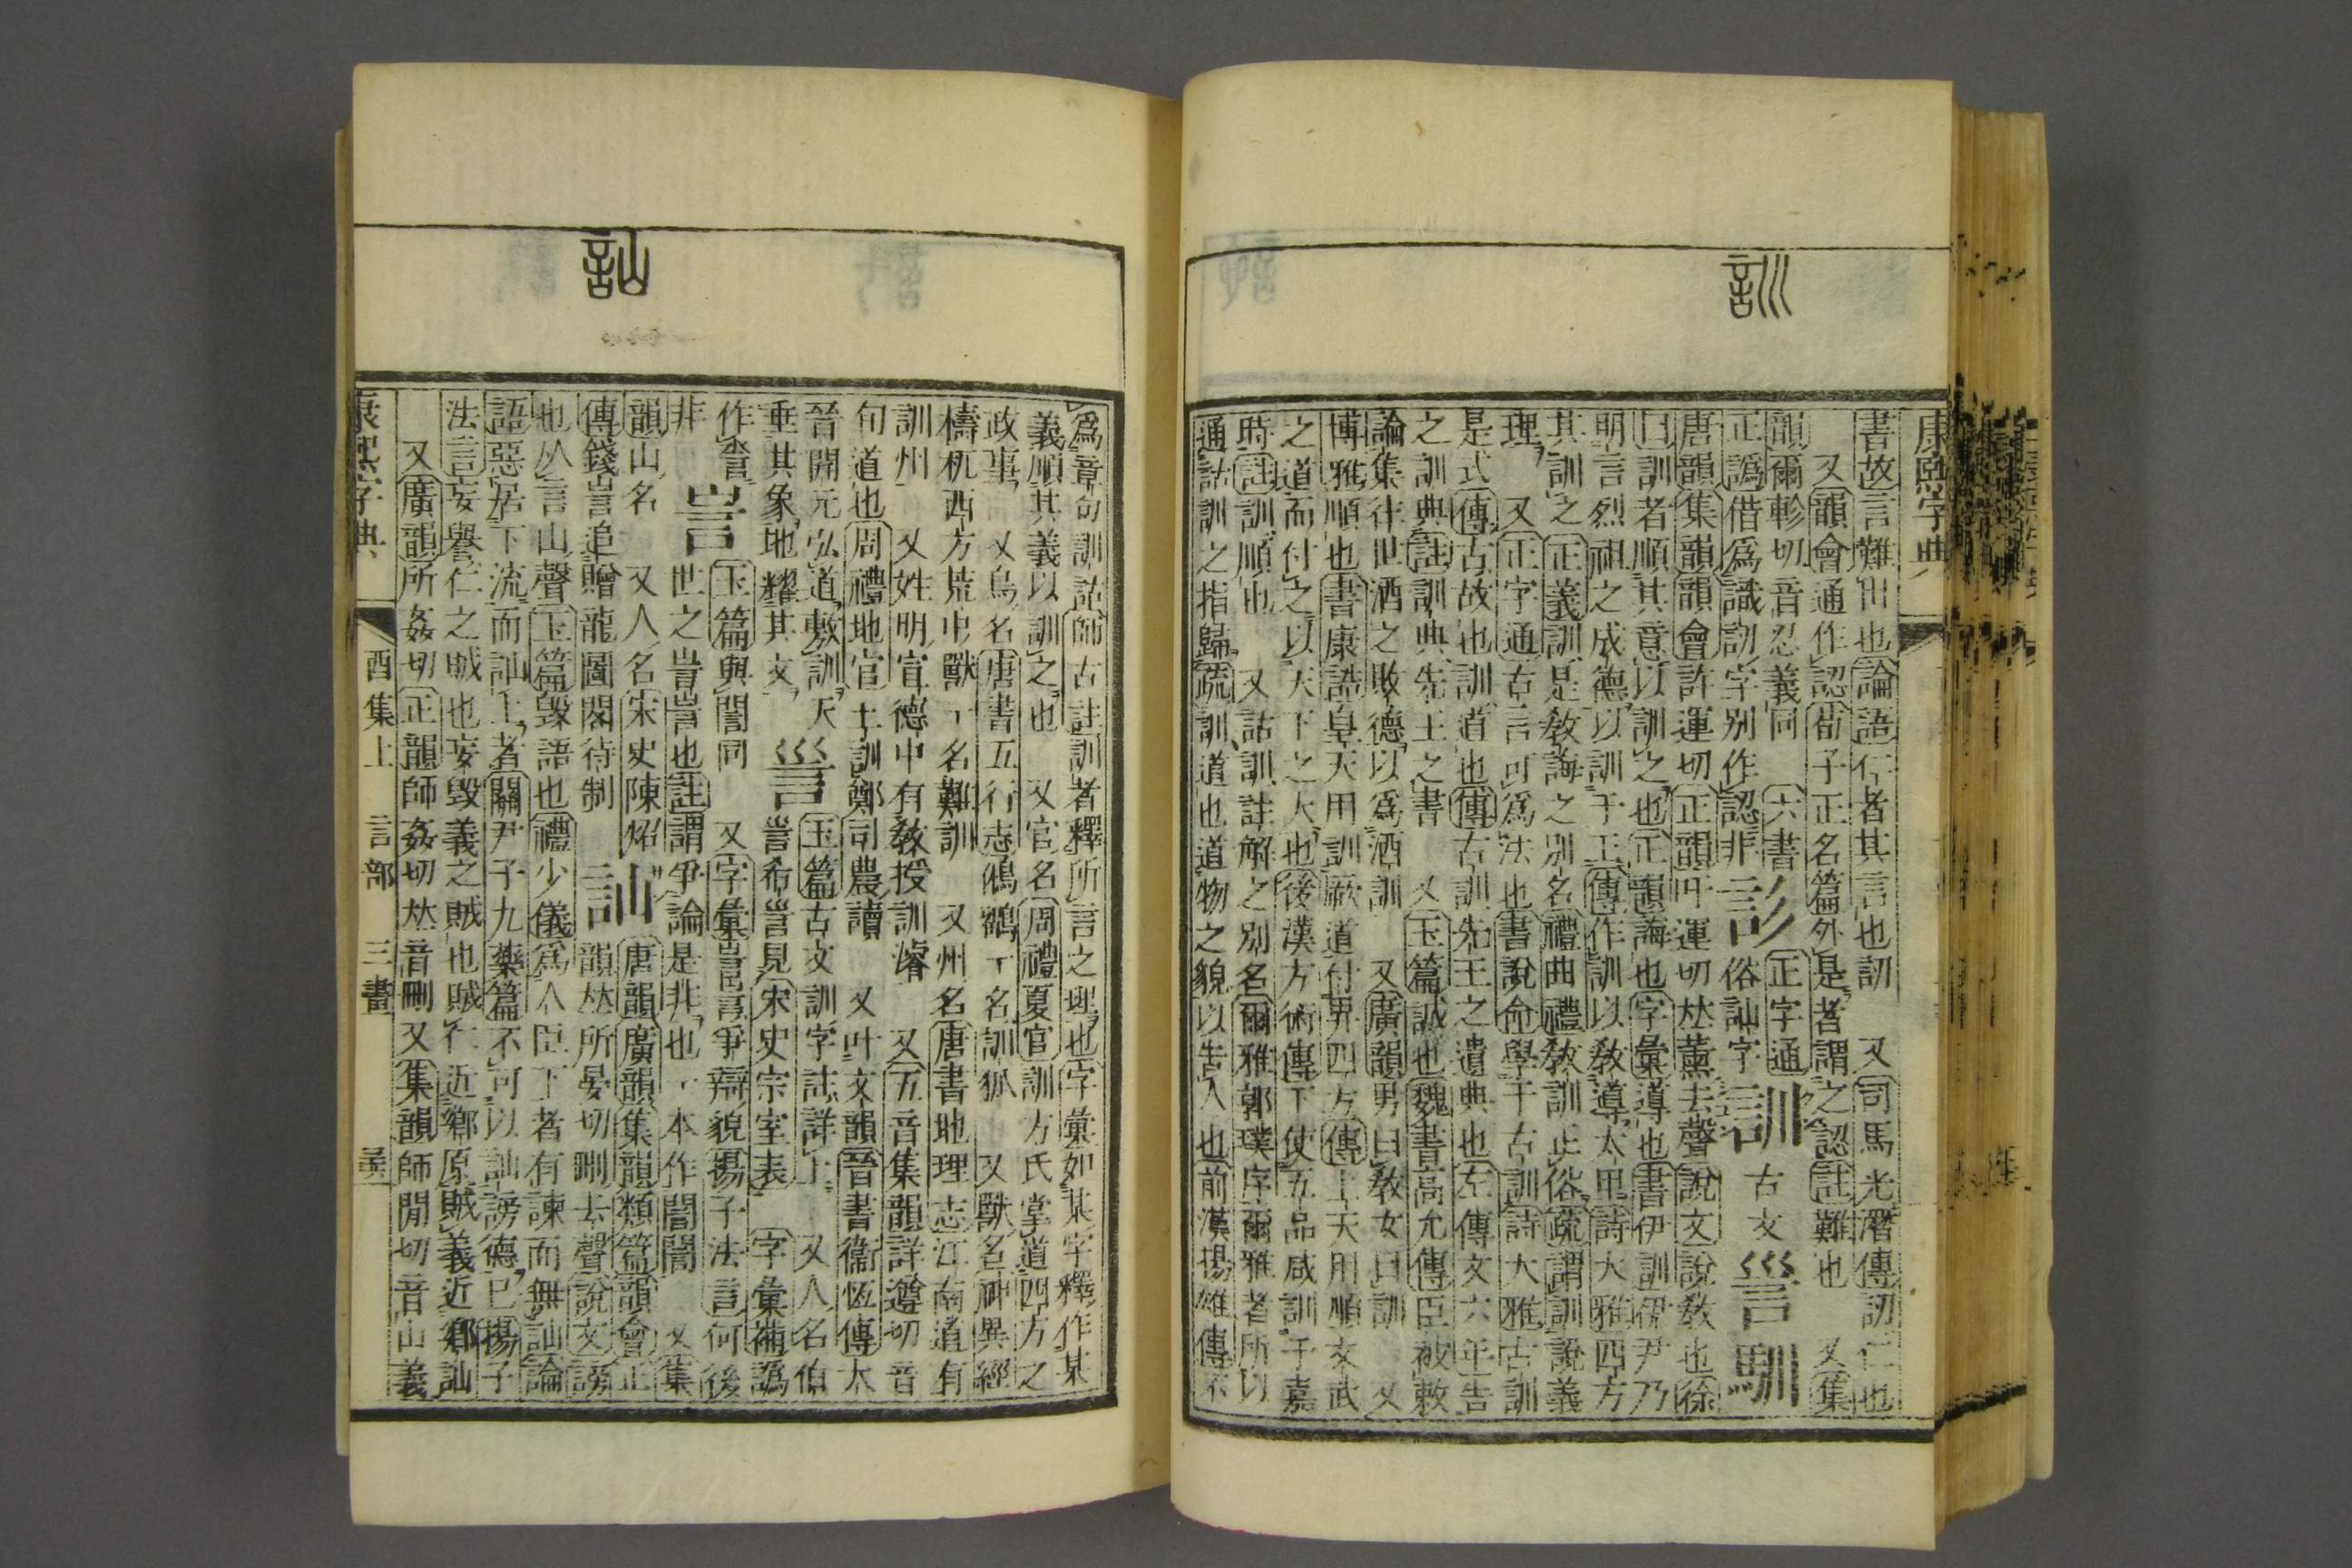 訓
康熙字典
書故言難出也論語仁者其言也訒 又司馬光潛傳訒仁也
又韻會通作認荀子正名篇外是者謂之認註難也 又集
韻爾軫切音忍義同 六書正譌借爲識訒字别作認非
䚲 正字通俗訕字
訓 古文 𧥧 馴
唐韻集韻韻會許運切正韻吁運切𠀤薰去聲說文說敎也徐
曰訓者順其意以訓之也正韻誨也字彙導也書伊訓伊尹乃
明言烈祖之成德以訓于王傳作訓以敎導太甲詩大雅四方
其訓之正義訓是敎誨之别名禮曲禮敎訓正俗疏謂訓說義
理 又正字通古言可爲法也書說命學于古訓詩大雅古訓
是式傳古故也訓道也傳古訓先王之遺典也左傳文六年告
之訓典註訓典先王之書 又玉篇誡也魏書高允傳臣被敕
論集往世酒之敗德以爲酒訓 又廣韻男曰敎女曰訓 又
博雅順也書康誥皇天用訓厥道付畀四方傳上天用順文武
之道而付之以天下之大也後漢方術傳下使五品咸訓于嘉
時註訓順也 又詁訓註解之別名爾雅郭璞序爾雅者所以
通詁訓之指歸疏訓道也道物之貌以告人也前漢揚雄傳不
訕
爲章句訓詁師古註訓者釋所言之理也字彙如某字釋作某
義順其義以訓之也 又官名周禮夏官訓方氏掌道四方之
政事 又鳥名唐書五行志鵂鶹一名訓狐 又獸名神異經
檮杌西方荒中獸一名難訓 又州名唐書地理志江南道有
訓州 又姓明宣德中有敎授訓濬 又五音集韻詳遵切音
旬道也周禮地官土訓鄭司農讀 又叶文韻晉書衞恆傳大
晉開元弘道敷訓天垂其象地耀其文
𧥧 玉篇古文訓字註詳上 又人名伯𧥧希𧥧見宋史宗室表 字彙補譌
作𧥧
訔 玉篇與誾同 又字彙訔訔爭辯貌揚子法言何後
世之訔訔也註謂爭論是非也一本作誾誾 又集
韻山名 又人名宋史陳炤傳錢訔追贈龍圖閣待制
訕 唐韻廣韻集韻類篇韻會正韻𠀤所晏切刪去聲說文謗
也从言山聲玉篇毀語也禮少儀爲人臣下者有諫而無訕論
語惡居下流而訕上者關尹子九藥篇不可以訕謗德己揚子
法言妄譽仁之賊也妄毀義之賊也賊仁近鄕原賊義近鄕訕
又廣韻所姦切正韻師姦切𠀤音刪又集韻師閒切音山義
康熙字典 酉集上 言部 三畫